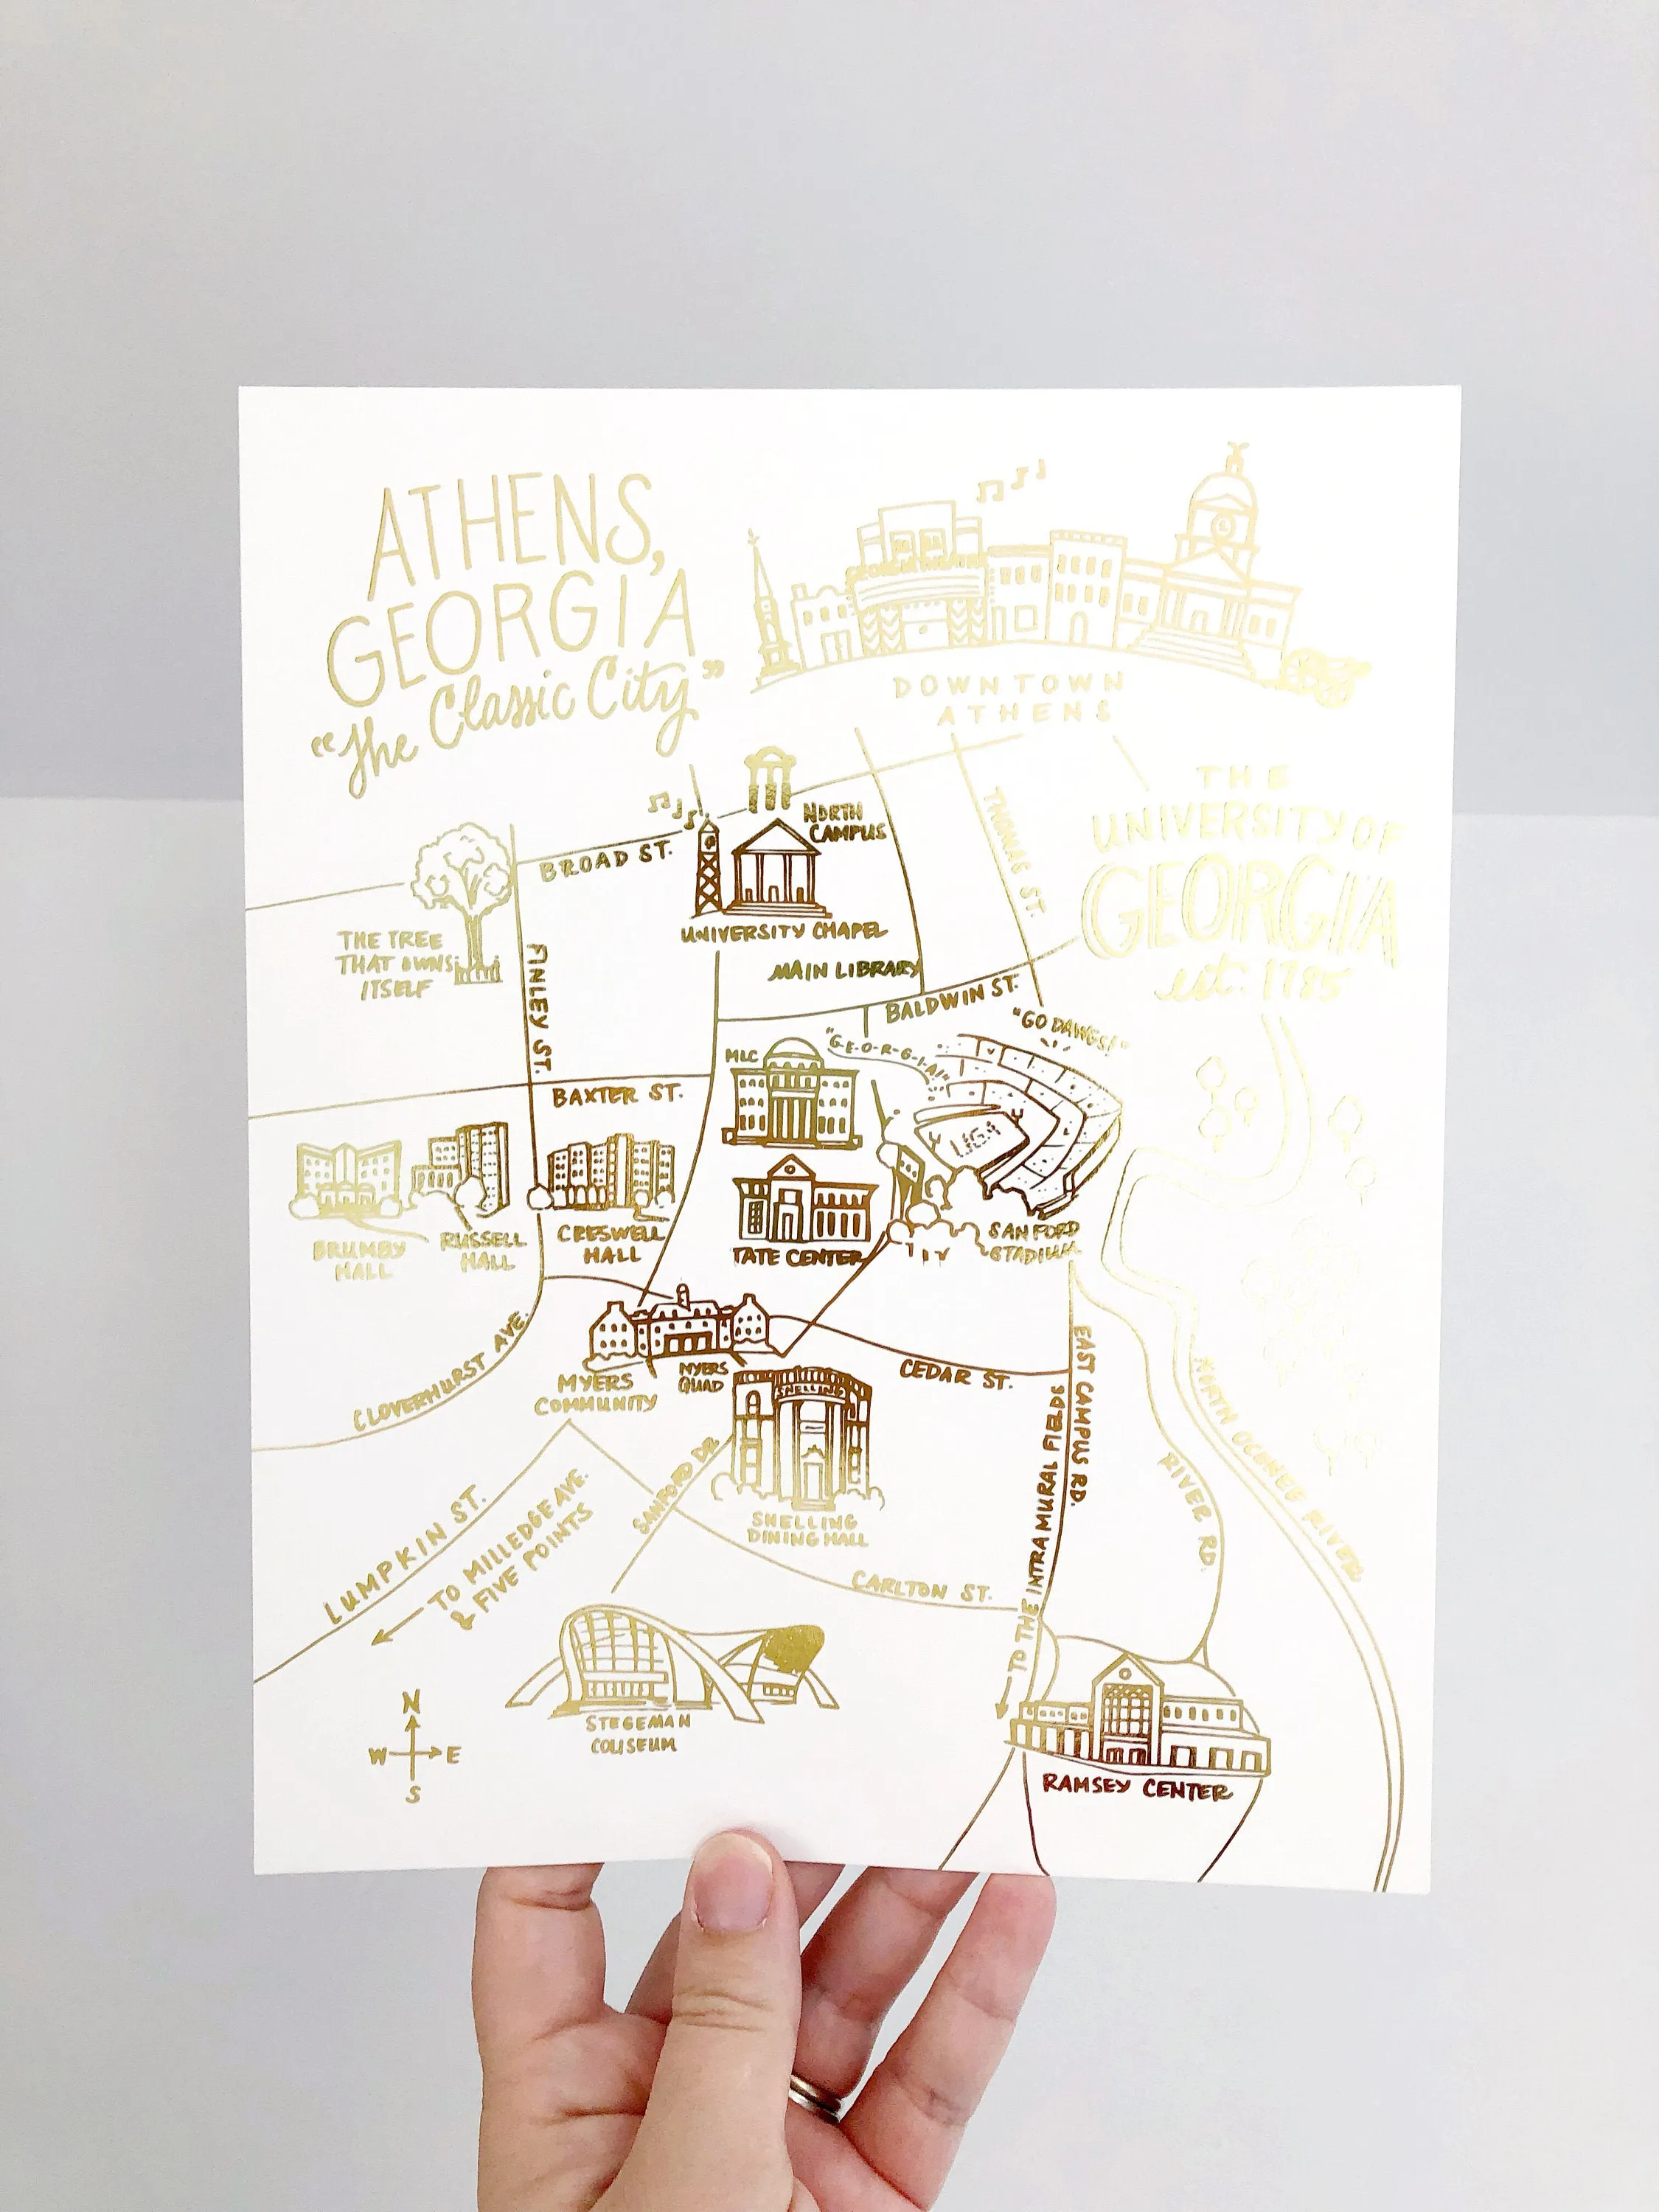 ATHENS,
GEORGIA
"The Classic City"
GEORGIA THEATRE
DOWNTOWN
ATHENS
THE
UNIVERSITY OF
GEORGIA
est. 1785
NORTH
CAMPUS
BROAD ST.
THOMAS ST.
UNIVERSITY CHAPEL
THE TREE
THAT OWNS
ITSELF
FINLEY ST.
MAIN LIBRARY
BALDWIN ST.
"GO DAWGS!"
"G-E-O-R-G-I-A!"
MLC
BAXTER ST.
UGA
BRUMBY
HALL
RUSSELL
HALL
CRESWELL
HALL
TATE CENTER
SANFORD
STADIUM
CLOVERHURST AVE.
MYERS
COMMUNITY
MYERS
QUAD
CEDAR ST.
SNELLING
EAST CAMPUS RD.
NORTH OCONEE RIVER
RIVER RD.
SANFORD DR.
SNELLING
DINING HALL
LUMPKIN ST.
TO MILLEDGE AVE.
& FIVE POINTS
CARLTON ST.
TO THE INTRAMURAL FIELDS
STEGEMAN
COLISEUM
N
W E
S
RAMSEY CENTER